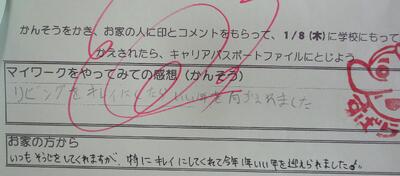 かんそうをかき、お家の人に印とコメントをもらって、1/8(木)に学校にもって
かえされたら、キャリアパスポートファイルにとじよう
マイワークをやってみての感想(かんそう)
リビングをキレイにしたらいい年をむかえれました
お家の方から
いつもそうじをしてくれますが、特にキレイにしてくれて今年1年いい年を迎えられましたよ。